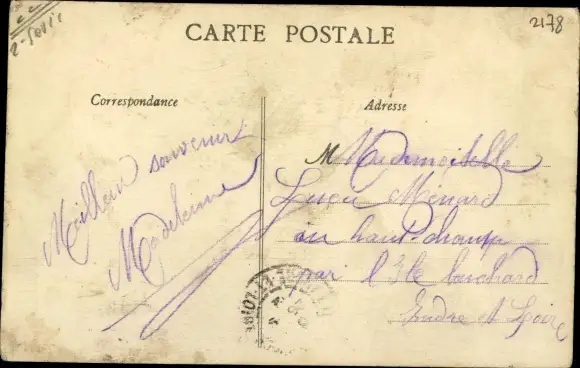 2178
CARTE POSTALE
Correspondance
Adresse
Meilleur souvenir
Madeleine
M Mademoiselle
Menard
au haut-champ
par l'Ile Bouchard
Indre et Loire